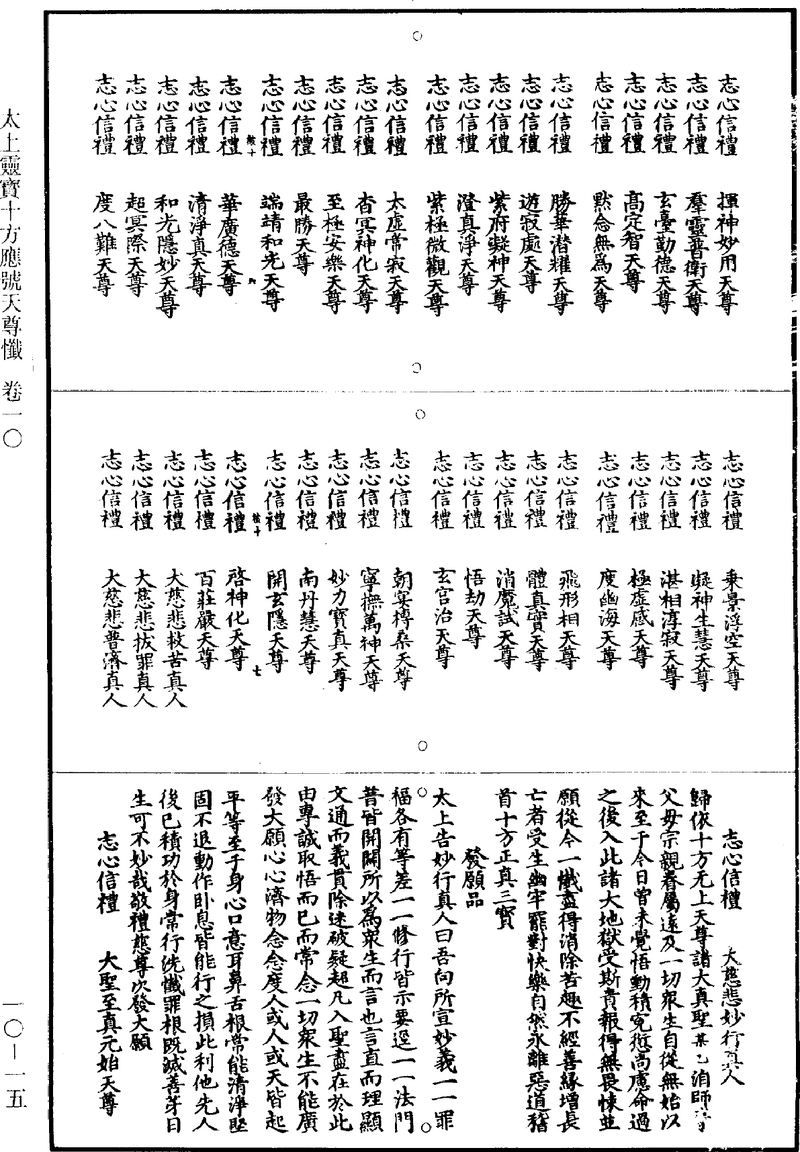 太上靈寶十方應號天尊懺　卷一〇
一〇－一五
志心信禮　揮神妙用天尊
志心信禮　羣靈普衛天尊
志心信禮　玄臺勤德天尊
志心信禮　高定智天尊
志心信禮　默念無為天尊
志心信禮　勝華潛耀天尊
志心信禮　遊寂處天尊
志心信禮　紫府凝神天尊
志心信禮　澄真淨天尊
志心信禮　紫極微觀天尊
志心信禮　太虛常寂天尊
志心信禮　杳冥神化天尊
志心信禮　至極安樂天尊
志心信禮　最勝天尊
志心信禮　端靖和光天尊
志心信禮　華廣德天尊
志心信禮　清淨真天尊
志心信禮　和光隱妙天尊
志心信禮　超冥際天尊
志心信禮　度八難天尊
志心信禮　乗景浮空天尊
志心信禮　凝神生慧天尊
志心信禮　湛相淳寂天尊
志心信禮　極虛感天尊
志心信禮　度幽海天尊
志心信禮　飛形相天尊
志心信禮　體真實天尊
志心信禮　消魔試天尊
志心信禮　悟劫天尊
志心信禮　玄宫治天尊
志心信禮　朝宴榑桑天尊
志心信禮　寧撫萬神天尊
志心信禮　妙力寶真天尊
志心信禮　南丹慧天尊
志心信禮　開玄隱天尊
七
志心信禮　啓神化天尊
志心信禮　百莊嚴天尊
志心信禮　大慈悲救苦真人
志心信禮　大慈悲拔罪真人
志心信禮　大慈悲普濟真人
志心信禮　大慈悲妙行真人
歸依十方无上天尊諸大真聖某乙洎師
父母宗親眷屬遠及一切衆生自從無始以
來至于今日曾未覺悟動積寃愆尚慮命過
之後入此諸大地獄受斯責報得無畏悚並
願從今一懺盡得消除苦趣不經善緣增長
亡者受生幽牢罷對快樂自然永離惡道稽
首十方正真三寶
發願品
太上告妙行真人曰吾向所宣妙義一一罪
福各有等差一一修行皆示要逕一一法門
普皆開闢所以為衆生而言也言直而理顯
文通而義貫除迷破疑超凡入聖盡在於此
由專誠取悟而已而常念一切衆生不能廣
發大願心心濟物念念度人或人或天皆起
平等至于身心口意耳鼻舌根常能清淨堅
固不退動作卧息皆能行之損此利他先人
後已積功於身常行洗懺罪根既滅善芽日
生可不妙哉敬禮慈尊次發大願
志心信禮　大聖至真元始天尊